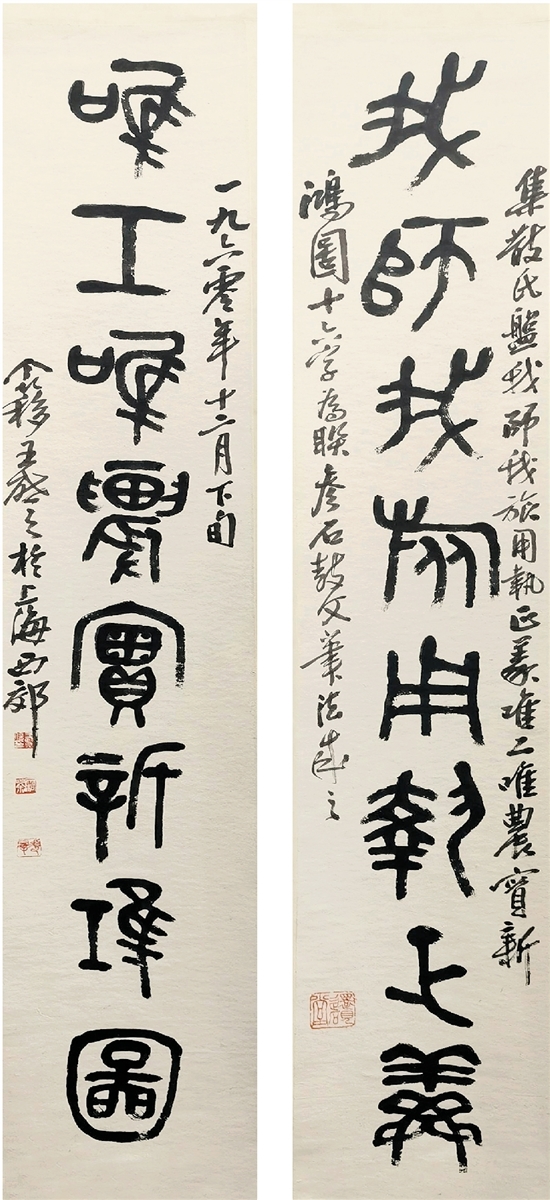 集散氏盤我師我旅用執正義唯工唯農實新
我師我旅用執正義
鴻圖十六字為聯參石鼓文筆法成之
一九六零年十二月下旬
唯工唯農實新鴻圖
个簃王啟之於上海西郊